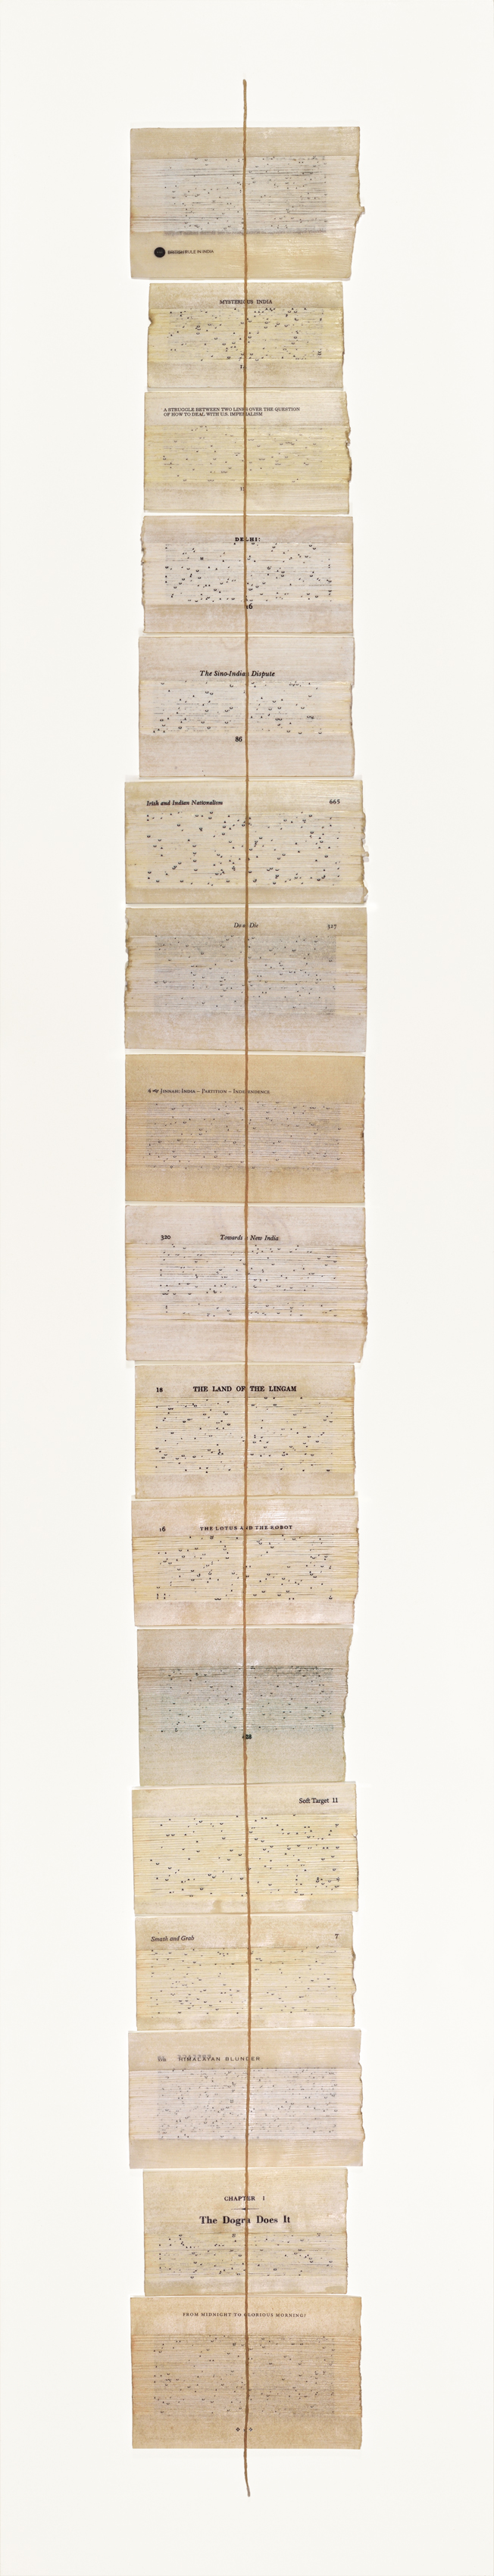 BRITISH RULE IN INDIA
MYSTERIOUS INDIA
A STRUGGLE BETWEEN TWO LINES OVER THE QUESTION
OF HOW TO DEAL WITH U.S. IMPERIALISM
DELHI:
16
The Sino-Indian Dispute
86
Irish and Indian Nationalism 665
Do or Die 327
JINNAH: INDIA – PARTITION – INDEPENDENCE
320 Towards a New India
18 THE LAND OF THE LINGAM
16 THE LOTUS AND THE ROBOT
Soft Target 11
Smash and Grab 7
HIMALAYAN BLUNDER
CHAPTER 1
The Dogra Does It
FROM MIDNIGHT TO GLORIOUS MORNING?